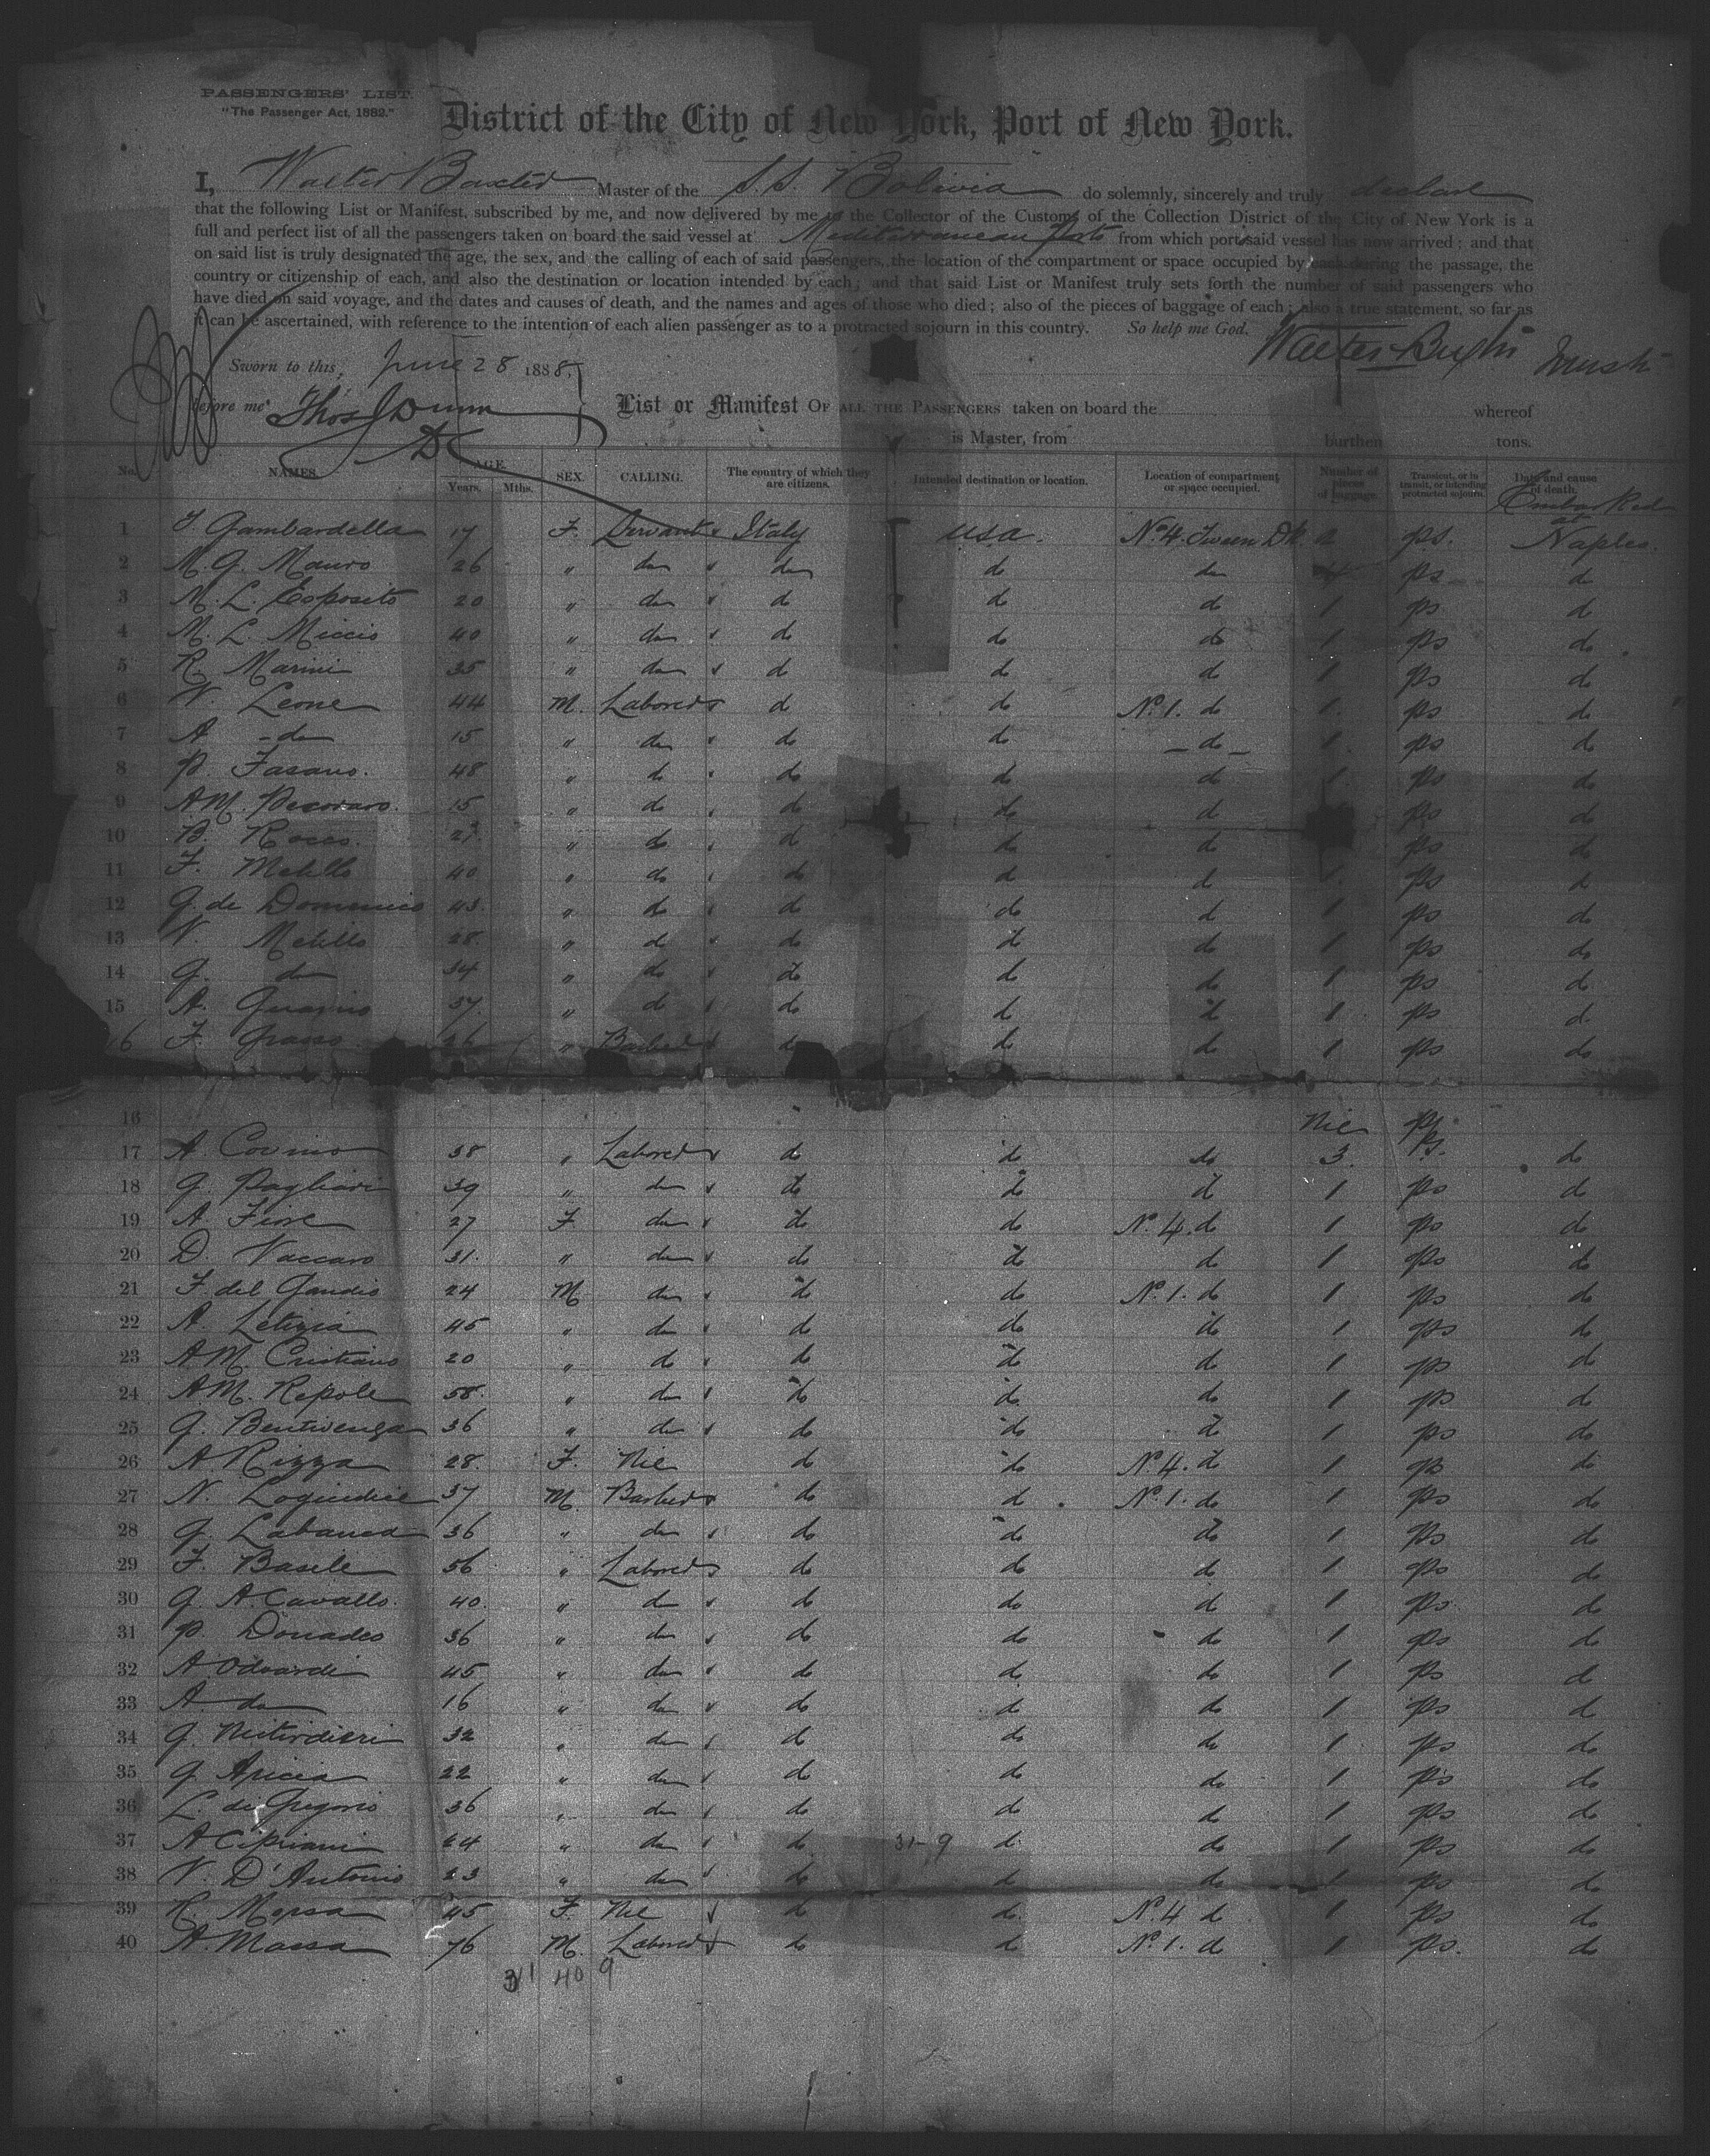 PASSENGERS' LIST.
"The Passenger Act, 1882."
District of the City of New York, Port of New York.
I, Walter Baxter Master of the S.S. Bolivia do solemnly, sincerely and truly declare
that the following List or Manifest, subscribed by me, and now delivered by me to the Collector of the Customs of the Collection District of the City of New York is a
full and perfect list of all the passengers taken on board the said vessel at Mediterranean Ports from which port said vessel has now arrived; and that
on said list is truly designated the age, the sex, and the calling of each of said passengers, the location of the compartment or space occupied by each during the passage, the
country or citizenship of each, and also the destination or location intended by each; and that said List or Manifest truly sets forth the number of said passengers who
have died on said voyage, and the dates and causes of death, and the names and ages of those who died; also of the pieces of baggage of each; also a true statement, so far as
it can be ascertained, with reference to the intention of each alien passenger as to a protracted sojourn in this country. So help me God.
Walter
Sworn to this, June 28 1888.
before me Thos J Dunn
List or Manifest OF ALL THE PASSENGERS taken on board the whereof
is Master, from burthen tons.
No. NAMES. AGE Years. Mths. SEX. CALLING. The country of which they are citizens. Intended destination or location. Location of compartment or space occupied. Number of pieces of baggage. Transient, or in transit, or intending protracted sojourn. Date and cause of death.
Embarked at
1 Gambardella 17 F. Servant Italy USA. No. 4. Tween Dk. 2 ps. Naples.
2 M. G. Mauro 26 " do do do do ps do
3 M. L. Esposito 20 " do do do do 1 ps do
4 M. L. Miccio 40 " do do do do 1 ps do
5 R. Marini 35 " do do do do 1 ps do
6 N. Leone 44 M. Laborer do do No. 1. do 1 ps do
7 A - do 15 " do do do - do - 1 ps do
8 P. Fasano. 48 " do do do do 1 ps do
9 A.M. Pecoraro. 15 " do do do do ps do
10 B. Rocco. 27. " do do do do ps do
11 F. Melillo 40 " do do do do 1 ps do
12 G. de Domenico 43. " do do do do 1 ps do
13 N. Melillo 28. " do do do do 1 ps do
14 G. do 34 " do do do do 1 ps do
15 A. 37. " do do do do 1 ps do
16 F. Grasso 26 " Barber do do do 1 ps do
16 Nil ps
17 A Covino 38 " Laborer do do do 3. ps. do
18 G. Pagliari 39 " do do do do 1 ps do
19 A. Fiore 27 F. do do do No. 4. do 1 ps do
20 D. Vaccaro 31. " do do do do 1 ps do
21 F. del Gaudio 24 M do do do No. 1. do 1 ps do
22 A. Letizia 45 " do do do do 1 ps do
23 A.M. Cristiano 20 " do do do do 1 ps do
24 A.M. Repole 58. " do do do do 1 ps do
25 G. Bentivenga 36 " do do do do 1 ps do
26 A Rizza 28. F. Nil do do No. 4. do 1 ps do
27 N. Logiudice 37 M. Barber do do No. 1. do 1 ps do
28 G. Labanca 36 " do do do do 1 ps do
29 F. Basile 56 " Laborer do do do 1 ps do
30 G. A. Cavallo. 40. " do do do do 1 ps do
31 P. Donadeo 36 " do do do do 1 ps do
32 A Odoardi 45 " do do do do 1 ps do
33 A. do 16 " do do do do 1 ps do
34 G. 32 " do do do do 1 ps do
35 G. Apicea 22 " do do do do 1 ps do
36 L. de Gregorio 36 " do do do do 1 ps do
37 A Cipriani 24 " do do 31-9 do do 1 ps do
38 N. D'Antonio 23 " do do do do 1 ps do
39 45 F. Nil do do No. 4 do 1 ps do
40 A. Massa 76 M. Laborer do do No. 1. do 1 ps. do
31 40 9